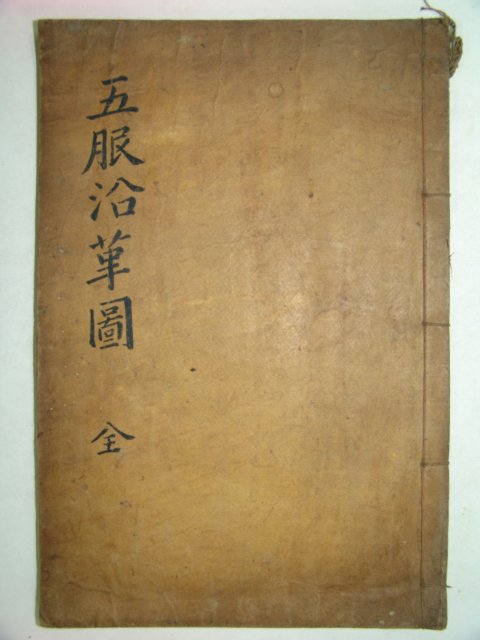 五服沿革圖
全